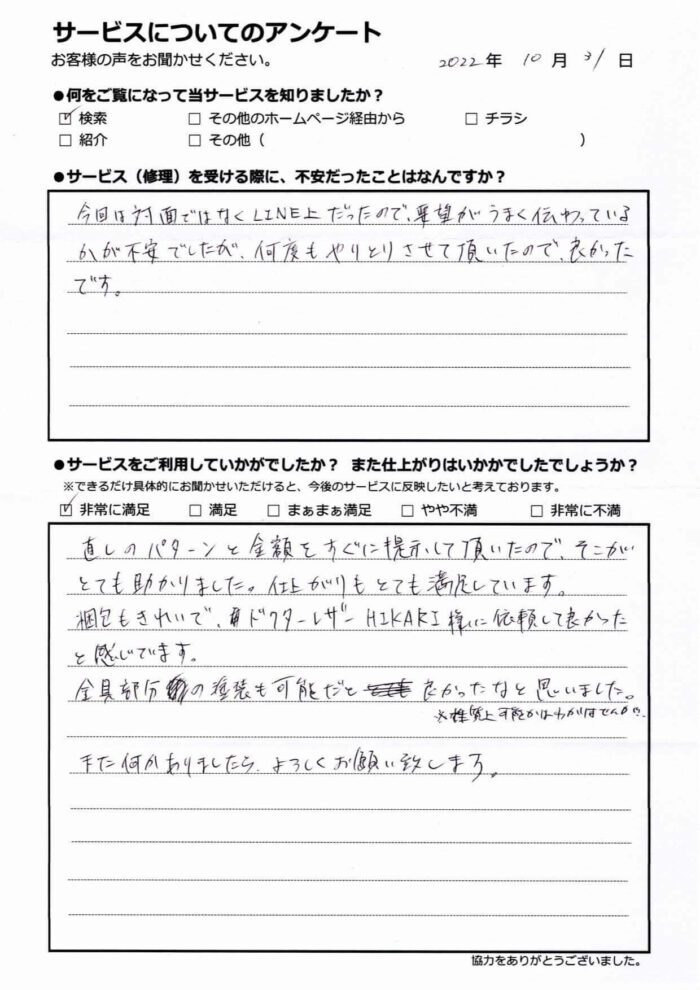 サービスについてのアンケート
お客様の声をお聞かせください。
2022年 10月 31日
●何をご覧になって当サービスを知りましたか？
☑ 検索 □ その他のホームページ経由から □ チラシ
□ 紹介 □ その他（ ）
●サービス（修理）を受ける際に、不安だったことはなんですか？
今回は対面ではなくLINE上だったので、要望がうまく伝わっている
かが不安でしたが、何度もやりとりさせて頂いたので、良かった
です。
●サービスをご利用していかがでしたか？ また仕上がりはいかかでしたでしょうか？
※できるだけ具体的にお聞かせいただけると、今後のサービスに反映したいと考えております。
☑ 非常に満足 □ 満足 □ まぁまぁ満足 □ やや不満 □ 非常に不満
直しのパターンと金額をすぐに提示して頂いたので、そこが
とても助かりました。仕上がりもとても満足しています。
梱包もきれいで、ドクターレザーHIKARI様に依頼して良かった
と感じています。
金具部分の塗装も可能だと良かったなと思いました。
※性質上可能かはわかりませんが
また何かありましたら、よろしくお願い致します。
協力をありがとうございました。